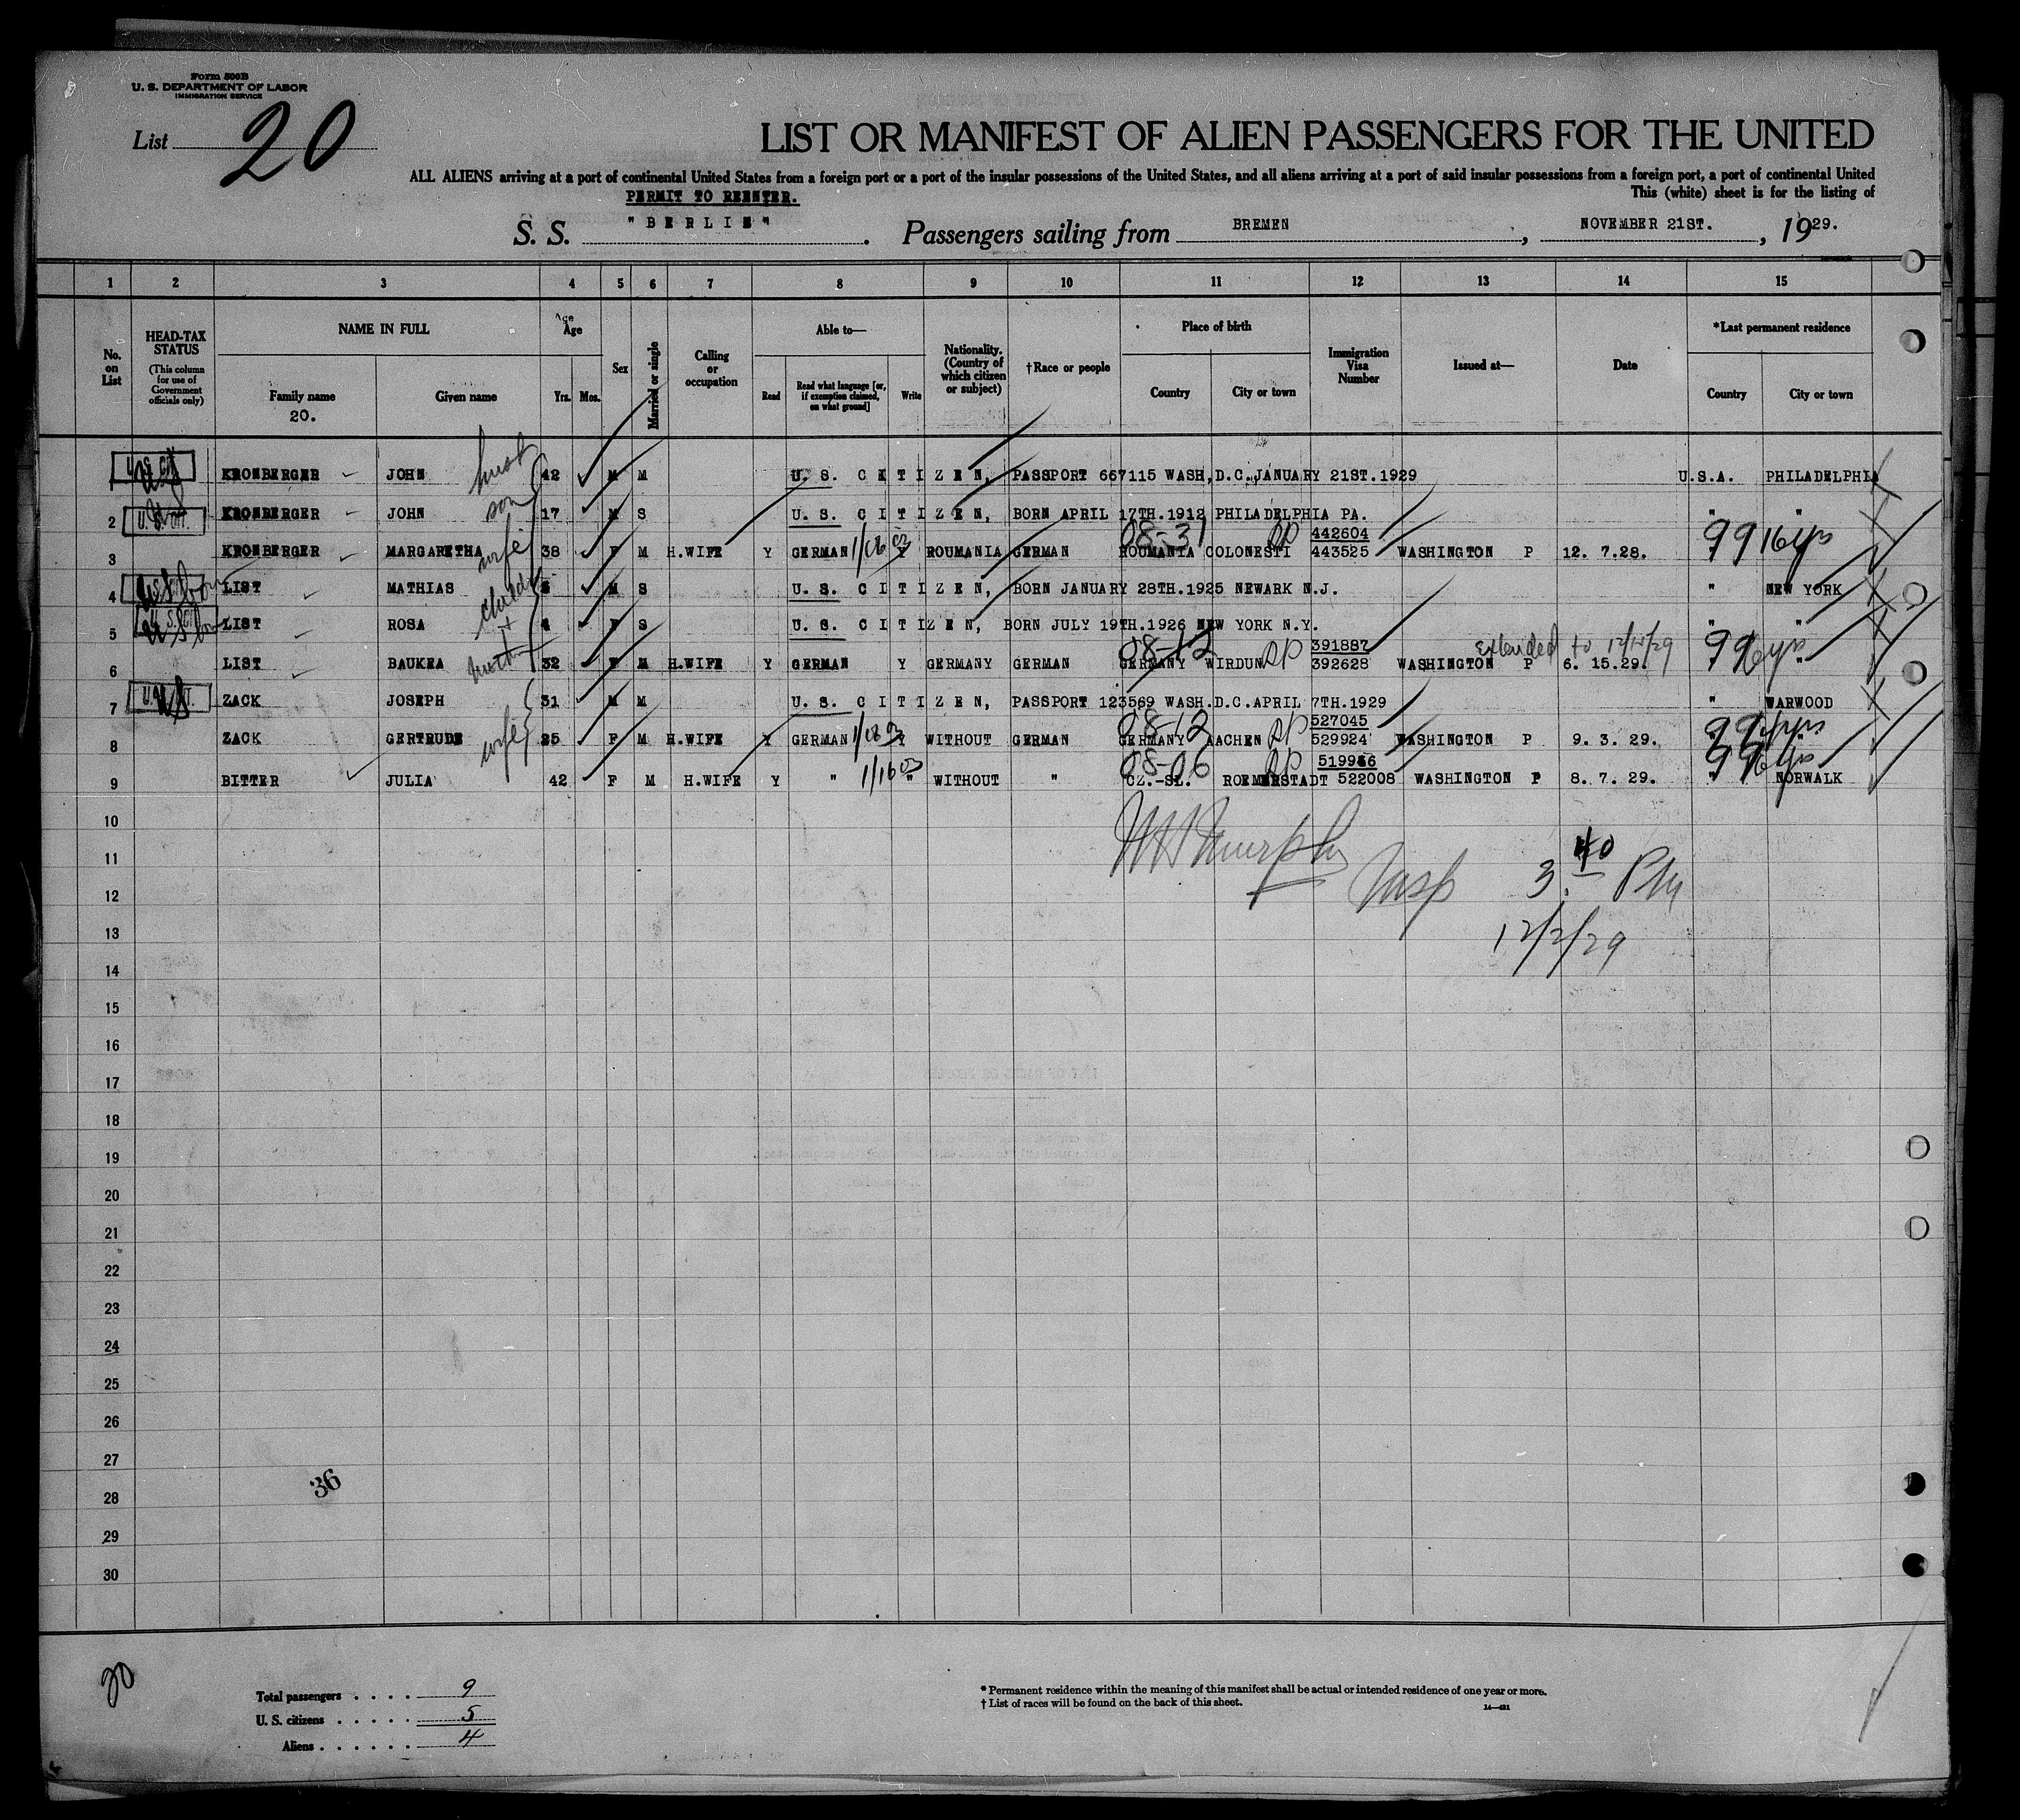 Form 500B
U. S. DEPARTMENT OF LABOR
IMMIGRATION SERVICE
List 20
LIST OR MANIFEST OF ALIEN PASSENGERS FOR THE UNITED
ALL ALIENS arriving at a port of continental United States from a foreign port or a port of the insular possessions of the United States, and all aliens arriving at a port of said insular possessions from a foreign port, a port of continental United
PERMIT TO REENTER. This (white) sheet is for the listing of
S. S. "BERLIN". Passengers sailing from BREMEN, NOVEMBER 21ST., 1929.
1 2 3 4 5 6 7 8 9 10 11 12 13 14 15
No. on List
HEAD-TAX STATUS
(This column for use of Government officials only)
NAME IN FULL
Family name
20.
Given name
Age
Age
Yrs. Mos.
Sex
Married or single
Calling or occupation
Able to—
Read
Read what language [or, if exemption claimed, on what ground]
Write
Nationality. (Country of which citizen or subject)
†Race or people
Place of birth
Country
City or town
Immigration Visa Number
Issued at—
Date
*Last permanent residence
Country
City or town
KRONBERGER JOHN husb 42 M M U. S. CITIZEN, PASSPORT 667115 WASH,D.C.JANUARY 21ST.1929 U.S.A. PHILADELPHIA
2 KRONBERGER JOHN son 17 M S U. S. CITIZEN, BORN APRIL 17TH.1912 PHILADELPHIA PA. " "
08-31 RP 442604 99 16 yrs
3 KRONBERGER MARGARETHA wife 38 F M H.WIFE Y GERMAN Y ROUMANIA GERMAN ROUMANIA COLONESTI 443525 WASHINGTON P 12. 7.28.
4 LIST MATHIAS 5 M S U. S. CITIZEN, BORN JANUARY 28TH.1925 NEWARK N.J. " NEW YORK
5 LIST ROSA 4 F S U. S. CITIZEN, BORN JULY 19TH.1926 NEW YORK N.Y. " "
08-12 RP 391887 extended to 12/15/29 99 6 yrs
6 LIST BAUKEA moth 32 F M H.WIFE Y GERMAN Y GERMANY GERMAN GERMANY WIRDUN 392628 WASHINGTON P 6. 15.29. "
7 ZACK JOSEPH 31 M M U. S. CITIZEN, PASSPORT 123569 WASH.D.C.APRIL 7TH.1929 " WARWOOD
08-12 RP 527045
8 ZACK GERTRUDE wife 25 F M H.WIFE Y GERMAN Y WITHOUT GERMAN GERMANY AACHEN 529924 WASHINGTON P 9. 3. 29.
08-06 RP 519966
9 BITTER JULIA 42 F M H.WIFE Y " " WITHOUT " CZ.-SL. ROEMERSTADT 522008 WASHINGTON P 8. 7. 29. " NORWALK
10
11
12
13
14
15
16
17
18
19
20
21
22
23
24
25
26
27
28
29
30
Murphy Insp 3.40 PM
12/2/29
36
20
Total passengers . . . . 9
U. S. citizens . . . . . 5
Aliens . . . . . . 4
* Permanent residence within the meaning of this manifest shall be actual or intended residence of one year or more.
† List of races will be found on the back of this sheet.
14—421